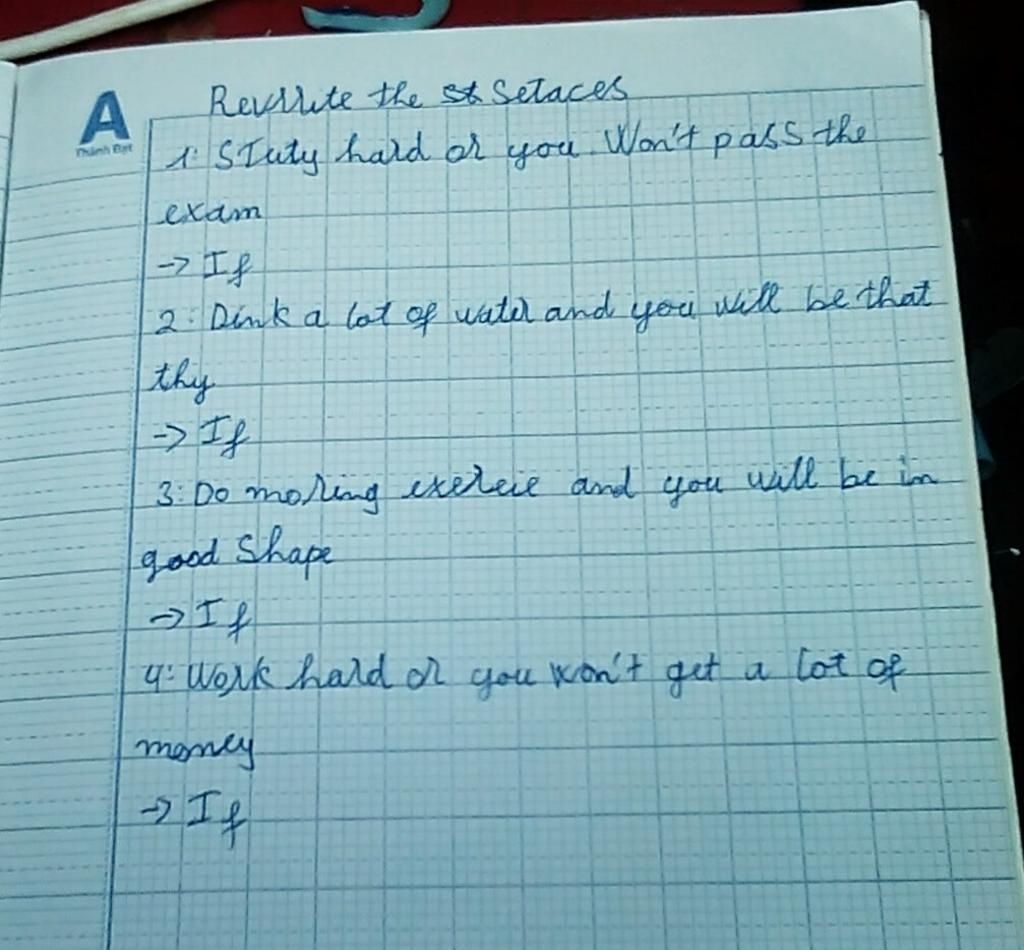 A
Thành Đạt
Rewrite the st Setaces
1: Stuty hard or you Won't pass the
exam
-> If
2: Dink a lot of water and you will be that
thy
-> If
3: Do moring exereie and you will be in
good Shape
-> If
4: Work hard or you won't get a lot of
money
-> If